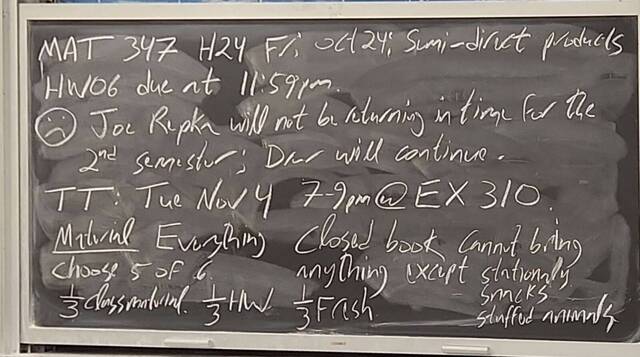 MAT 347 H24 Fri, Oct 24: Semi-direct products
HW06 due at 11:59pm.
Joe Repka will not be returning in time for the
2nd semester; Dror will continue.
TT: Tue Nov 4 7-9pm @ EX 310.
Material Everything Closed book cannot bring
Choose 5 of 6. anything except stationary
1/3 class material. 1/3 HW 1/3 Fresh snacks
stuffed animals